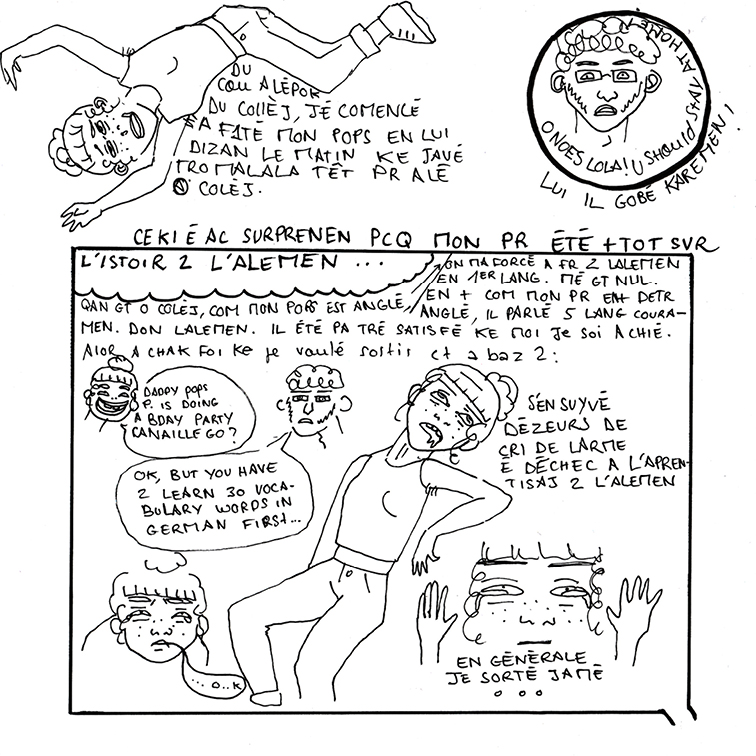 DU
COU A LÉPOK
DU COLLÈJ, JÉ COMENCÉ
A FATÉ MON POPS EN LUI
DIZAN LE MATIN KE JAVÉ
TRO MALALA TÊT PR ALÉ
O COLÈJ.
O NOES LOLA! U SHOULD STAY AT HOME!
LUI IL GOBÉ KAREMEN!
CEKI É AC SURPRENEN PCQ MON PR ÉTÉ + TOT SVR
L'ISTOIR 2 L'ALEMEN ...
ON MA FORCÉ A FR 2 LALEMEN
EN 1ER LANG. MÉ GT NUL.
QAN GT O COLÈJ, COM MON POPS EST ANGLÉ,
EN + COM MON PR EN+ DETR
ANGLÉ, IL PARLÉ 5 LANG COURA-
MEN. DON LALEMEN. IL ÉTÉ PA TRÉ SATISFÉ KE MOI JE SOI A CHIÉ.
ALOR A CHAK FOI KE JE VOULÉ SORTIR CT A BAZ 2:
DADDY POPS
P. IS DOING
A BDAY PARTY
CANAILLE GO?
OK, BUT YOU HAVE
2 LEARN 30 VOCA-
BULARY WORDS IN
GERMAN FIRST...
S'EN SUYVÉ
DÉZEURS DE
CRI DE LARME
É DÉCHEC A L'APREN-
TISAJ 2 L'ALEMEN
... O..K
EN GÉNÉRALE
JE SORTÉ JAMÉ
o o o